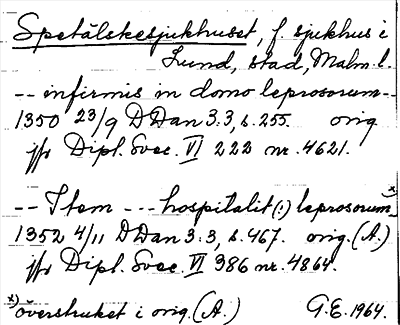 Spetälskesjukhuset, f. sjukhus i
Lund, stad, Malm. l.
-- infirmis in domo leprosorum --
1350 23/9 DDan 3:3, s. 255. orig
jfr Dipl. Svec. VI 222 nr. 4621.
-- Item --- hospitalit(:) leprosorum x)
1352 4/11 DDan 3:3, s. 467. orig. (A.)
jfr Dipl. Svec. VI 386 nr. 4864.
x) överstruket i orig. (A.) G.E. 1964.